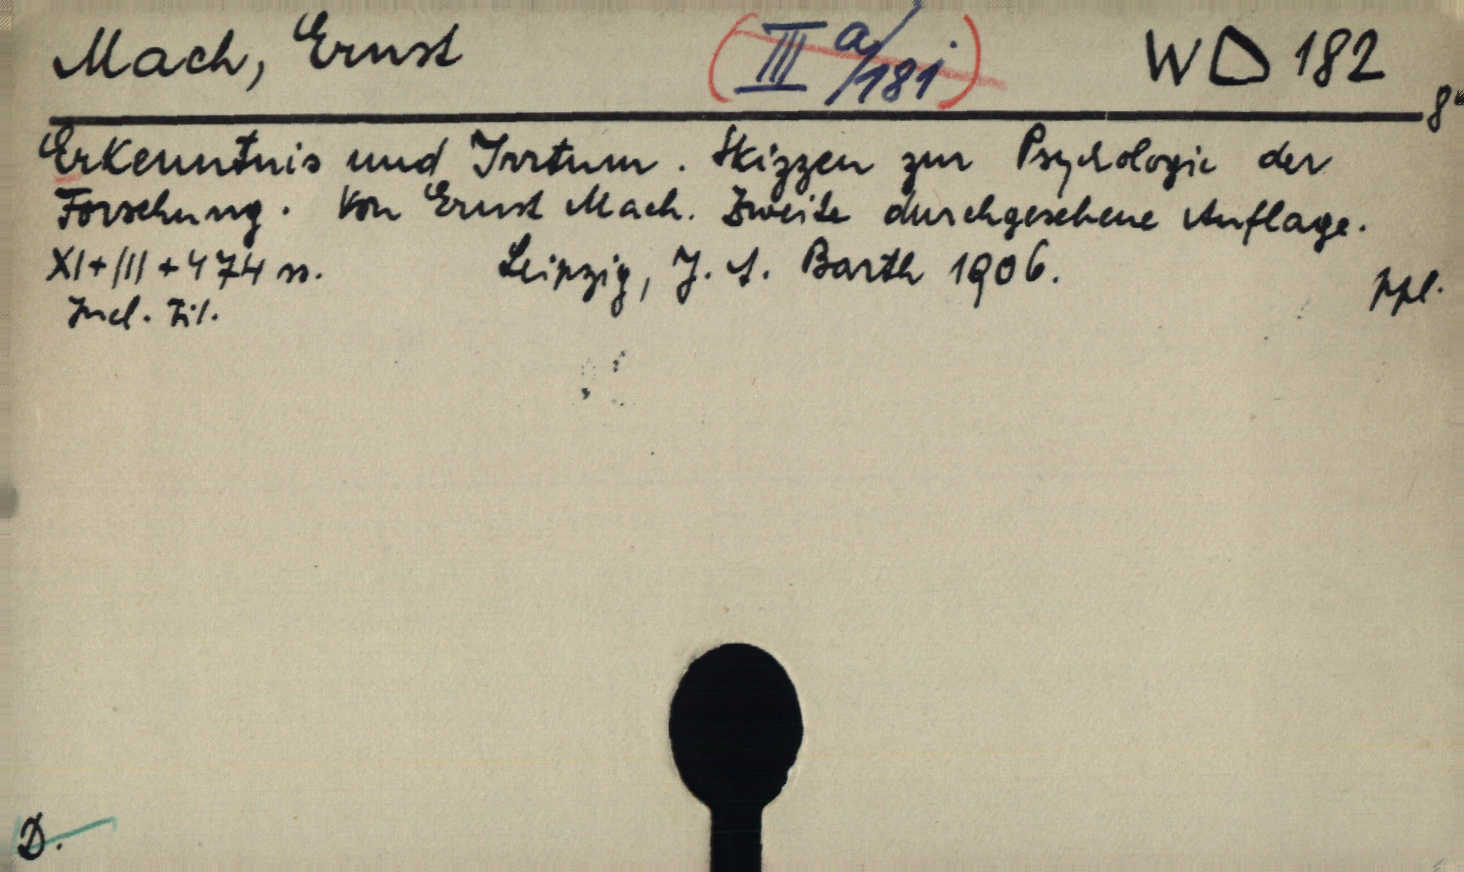 Mach, Ernst (III a/181i) W D 182
8°
Erkenntnis und Irrtum. Skizzen zur Psychologie der
Forschung. Von Ernst Mach. Zweite durchgesehene Auflage.
XI+/1/+474 ss. Leipzig, J. A. Barth 1906. ppl.
Incl. Fil.
D.